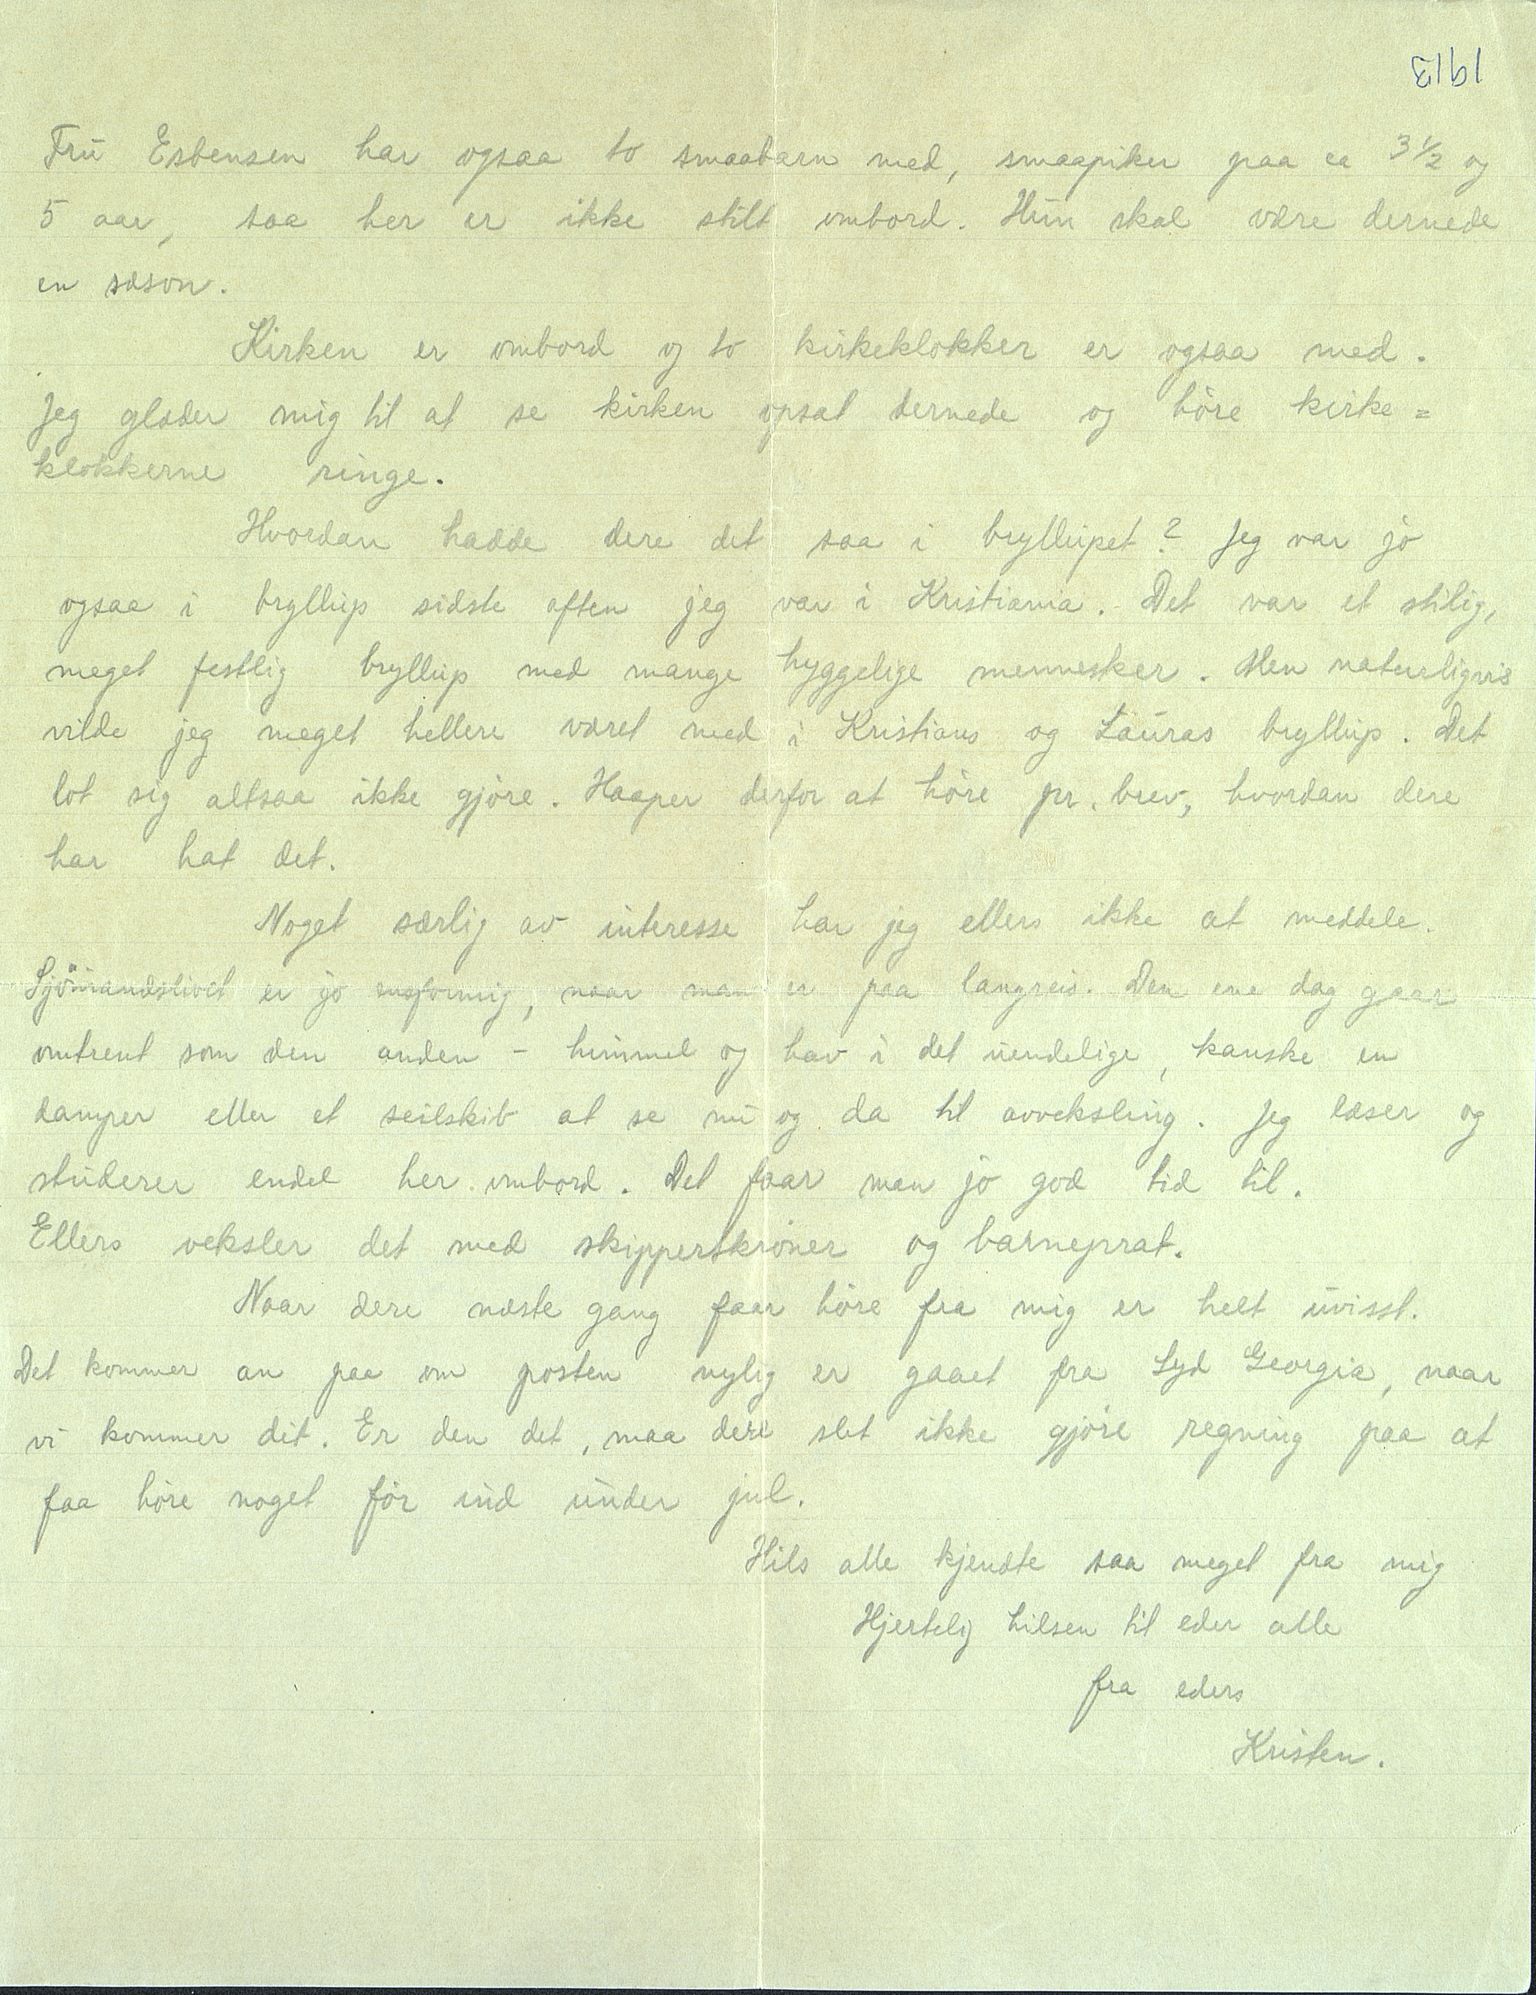 1913
Fru Esbensen har ogsaa to smaabarn med, smaapiker paa ca 3 1/2 og
5 aar, saa her er ikke stilt ombord. Hun skal være dernede
en sæson.
Kirken er ombord og to kirkeklokker er ogsaa med.
Jeg glæder mig til at se kirken opsat dernede og höre kirke=
klokkerne ringe.
Hvordan hadde dere det saa i bryllupet? Jeg var jo
ogsaa i bryllup sidste aften jeg var i Kristiania. Det var et stilig,
meget festlig bryllup med mange hyggelige mennesker. Men naturligvis
vilde jeg meget hellere været med i Kristians og Lauras bryllup. Det
lot sig altsaa ikke gjöre. Haaper derfor at höre pr. brev, hvordan dere
har hat det.
Noget særlig av interesse har jeg ellers ikke at meddele.
Sjömandslivet er jo ensformig, naar man er paa langreis. Den ene dag gaar
omtrent som den anden - himmel og hav i det uendelige, kanske en
damper eller et seilskib at se nu og da til avveksling. Jeg læser og
studerer endel her ombord. Det faar man jo god tid til.
Ellers veksler det med skipperskröner og barneprat.
Naar dere næste gang faar höre fra mig er helt uvisst.
Det kommer an paa om posten nylig er gaaet fra Syd Georgia, naar
vi kommer dit. Er den det, maa dere slet ikke gjöre regning paa at
faa höre noget för ind under jul.
Hils alle kjendte saa meget fra mig
Hjertelig hilsen til eder alle
fra eders
Kristen.